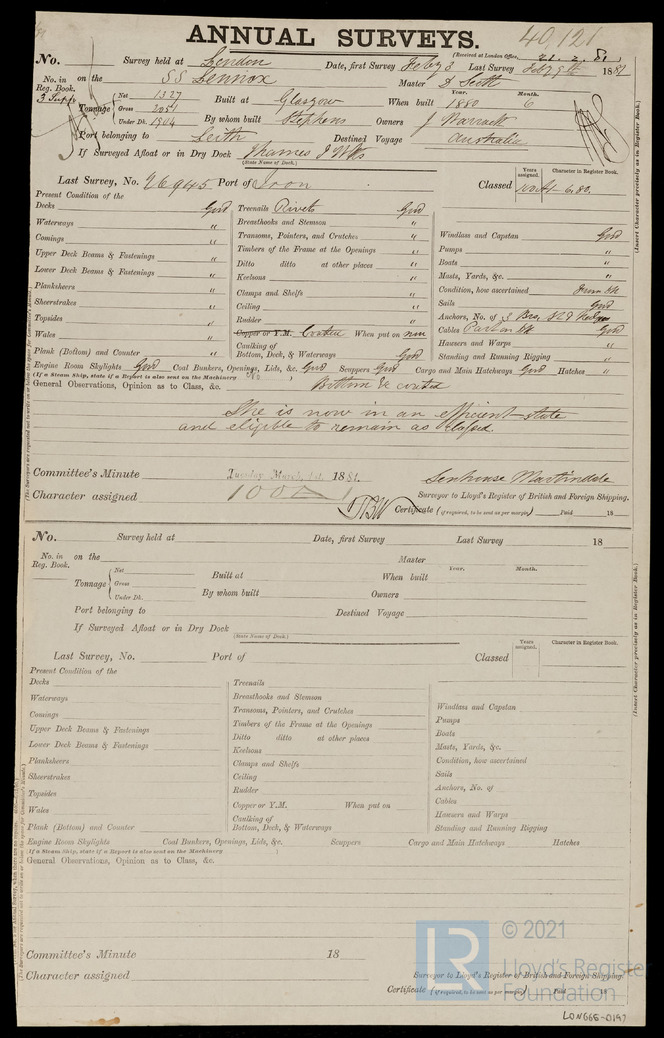 ANNUAL SURVEYS. 40,121
(Received at London Office,
No. Survey held at London Date, first Survey Feby 3 Last Survey Feby 9th 1881
No. in Reg. Book. on the SS Lennox Master D Seith
3 Supp
Tonnage Net 1327 Built at Glasgow When built Year. 1880 Month. 6
Gross 2051
Under Dk. 1904 By whom built Stephens Owners J Warrack
Port belonging to Leith Destined Voyage Australia
If Surveyed Afloat or in Dry Dock Thames I Wks
(State Name of Dock.)
Last Survey, No. 26945 Port of Iron Classed Years assigned. Character in Register Book. 100A1- 6,80,
Present Condition of the
Decks Good
Waterways "
Comings "
Upper Deck Beams & Fastenings "
Lower Deck Beams & Fastenings "
Planksheers "
Sheerstrakes "
Topsides "
Wales "
Plank (Bottom) and Counter "
Treenails Rivets Good
Breasthooks and Stemson "
Transoms, Pointers, and Crutches "
Timbers of the Frame at the Openings "
Ditto ditto at other places "
Keelsons "
Clamps and Shelfs "
Ceiling "
Rudder "
Copper or Y.M. Coated When put on now
Caulking of
Bottom, Deck, & Waterways Good
Windlass and Capstan Good
Pumps "
Boats "
Masts, Yards, &c. "
Condition, how ascertained from Dk
Sails Good
Anchors, No. of 3 Brs,
Cables Good
Hawsers and Warps "
Standing and Running Rigging "
Engine Room Skylights Good Coal Bunkers, Openings, Lids, &c. Good Scuppers Good Cargo and Main Hatchways Good Hatches "
(If a Steam Ship, state if a Report is also sent on the Machinery )
General Observations, Opinion as to Class, &c. Bottom coated
She is now in an efficient state
and eligible to remain as classed.
Committee's Minute Tuesday March 1st. 1881. Senhouse Martindale
Character assigned 100A1 Surveyor to Lloyd's Register of British and Foreign Shipping.
Certificate (if required, to be sent as per margin) Paid 18
(Insert Character precisely as in Register Book.)
No. Survey held at Date, first Survey Last Survey 18
No. in Reg. Book. on the Master
Tonnage Net Built at When built Year. Month.
Gross
Under Dk. By whom built Owners
Port belonging to Destined Voyage
If Surveyed Afloat or in Dry Dock
(State Name of Dock.)
Last Survey, No. Port of Classed Years assigned. Character in Register Book.
Present Condition of the
Decks
Waterways
Comings
Upper Deck Beams & Fastenings
Lower Deck Beams & Fastenings
Planksheers
Sheerstrakes
Topsides
Wales
Plank (Bottom) and Counter
Treenails
Breasthooks and Stemson
Transoms, Pointers, and Crutches
Timbers of the Frame at the Openings
Ditto ditto at other places
Keelsons
Clamps and Shelfs
Ceiling
Rudder
Copper or Y.M. When put on
Caulking of
Bottom, Deck, & Waterways
Windlass and Capstan
Pumps
Boats
Masts, Yards, &c.
Condition, how ascertained
Sails
Anchors, No. of
Cables
Hawsers and Warps
Standing and Running Rigging
Engine Room Skylights Coal Bunkers, Openings, Lids, &c. Scuppers Cargo and Main Hatchways Hatches
(If a Steam Ship, state if a Report is also sent on the Machinery )
General Observations, Opinion as to Class, &c.
(Insert Character precisely as in Register Book.)
Committee's Minute 18
Character assigned Surveyor to Lloyd's Register of British and Foreign Shipping.
Certificate (if required, to be sent as per margin) Paid 18
LR © 2021
Lloyd's Register
Foundation
LON668-0197